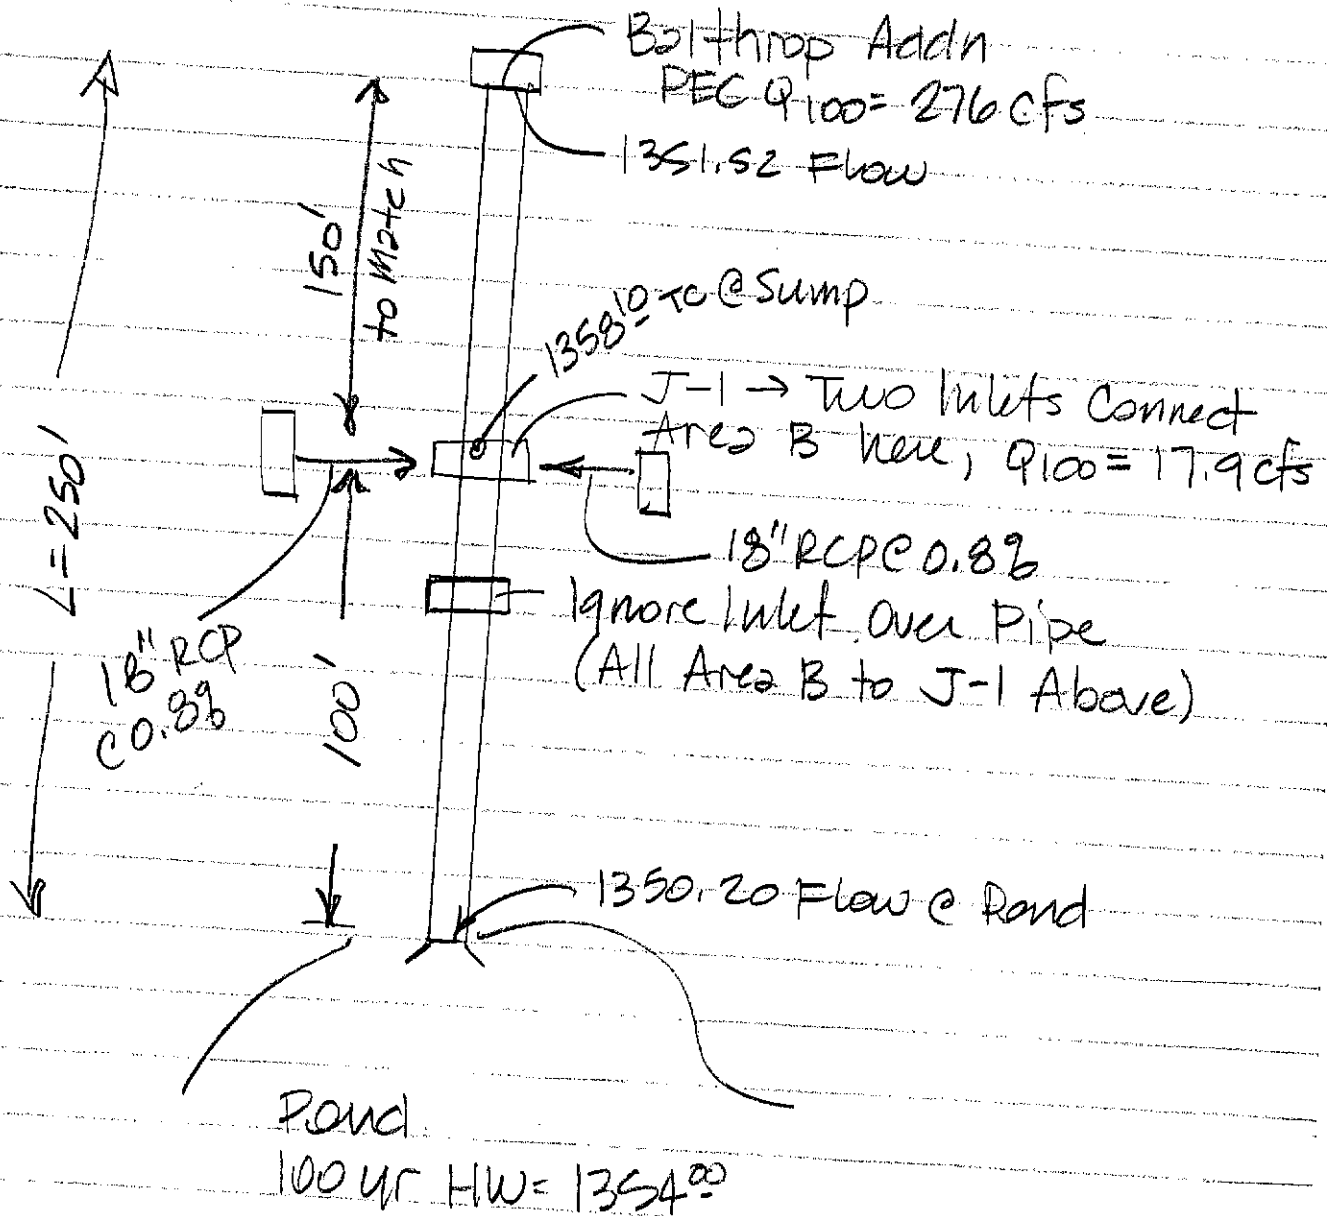 Balthrop Addn
PEC Q100= 276 cfs
1351.52 Flow
150'
to Match
1358.10 TC @ Sump
J-1 → Two Inlets Connect
Area B here, Q100= 17.9 cfs
L=250'
18" RCP @ 0.8%
Ignore Inlet Over Pipe
(All Area B to J-1 Above)
18" RCP
@ 0.8%
100'
1350.20 Flow @ Pond
Pond
100 yr HW= 1354.00